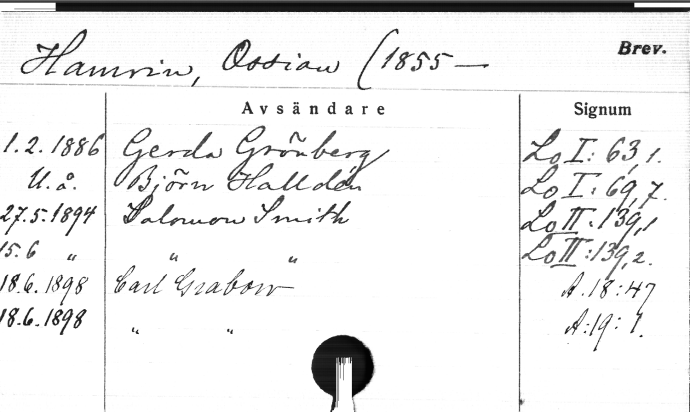 Hamrin, Ossian (1855 —
Brev.
Avsändare Signum
1.2.1886 Gerda Grönberg Lo I: 63,1.
U.å. Björn Halldén Lo I: 69,7.
27.5.1894 Salomon Smith Lo II: 139,1
15.6 " " " Lo II: 139,2.
18.6.1898 Carl Grabow A.18:47
18.6.1898 " " A:19:1.